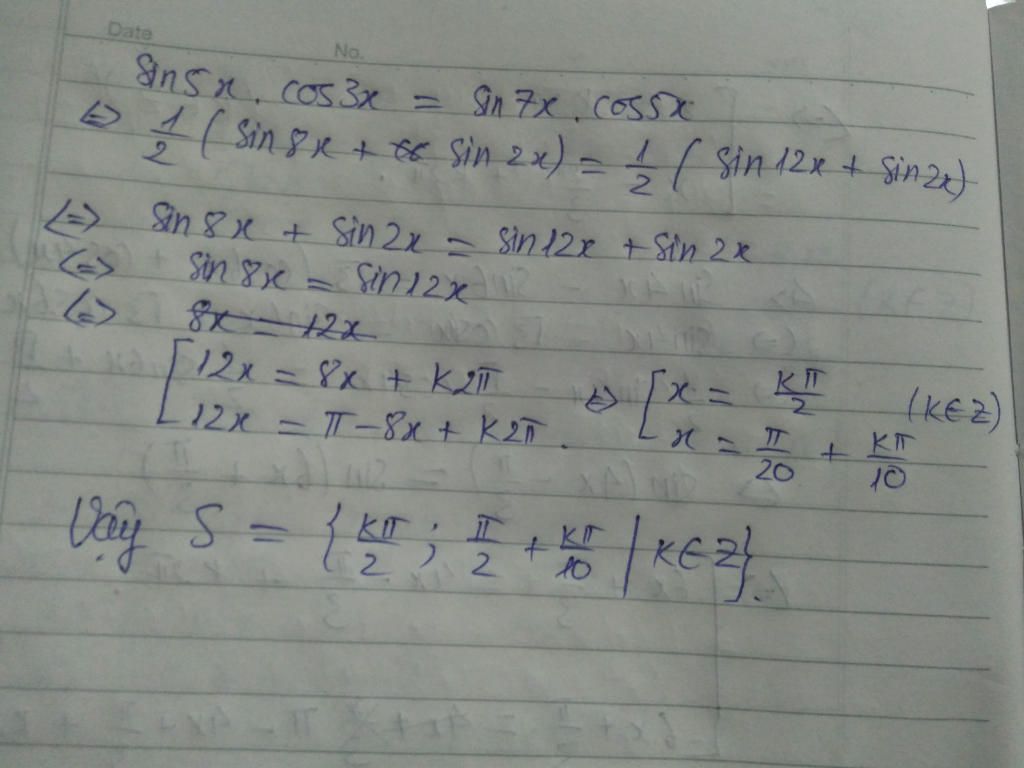 Date
No.
sin5x . cos3x = sin7x . cos5x
<=> 1/2 ( sin8x + sin2x) = 1/2 ( sin12x + sin2x)
<=> sin8x + sin2x = sin12x + sin2x
<=> sin8x = sin12x
<=> 8x = 12x
[ 12x = 8x + k2π <=> [ x = kπ/2 (k∈Z)
12x = π - 8x + k2π . x = π/20 + kπ/10
Vậy S = { kπ/2 ; π/2 + kπ/10 | k∈Z}.